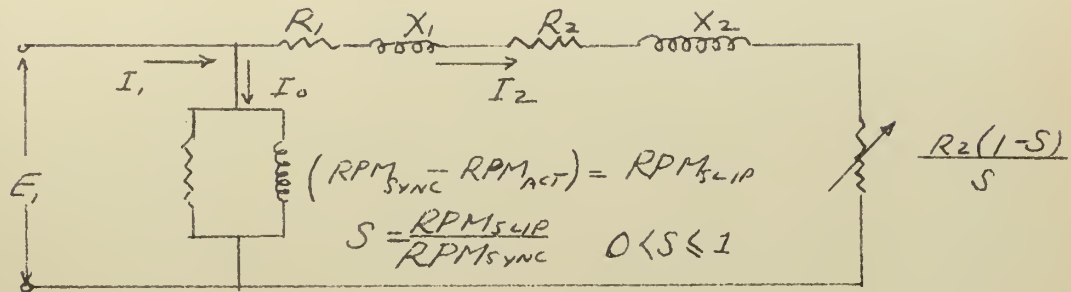 R1 X1 R2 X2
I1 I0 I2
E1
(RPM SYNC - RPM ACT) = RPM SLIP
R2(1-S)
S
S = RPM SLIP
RPM SYNC
0 < S ≤ 1